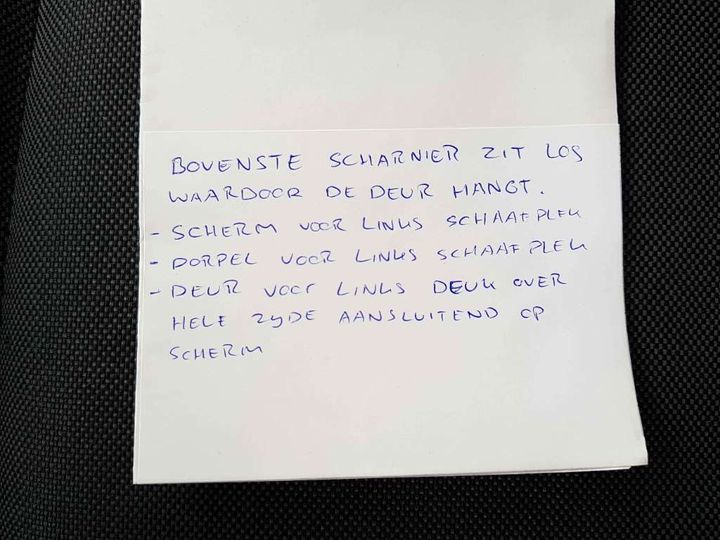 BOVENSTE SCHARNIER ZIT LOS
WAARDOOR DE DEUR HANGT.
- SCHERM VOOR LINKS SCHAAFPLEK
- DORPEL VOOR LINKS SCHAAFPLEK
- DEUR VOOR LINKS DEUK OVER
HELE ZYDE AANSLUITEND OP
SCHERM